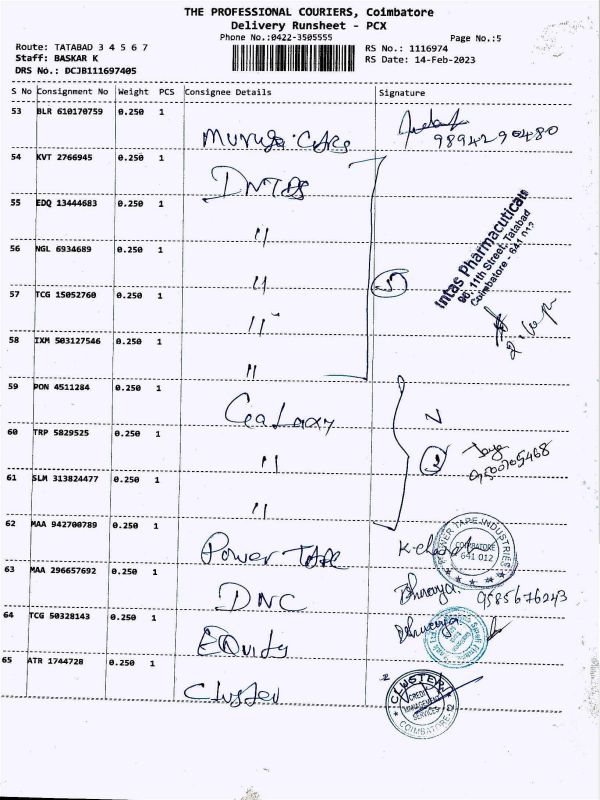 THE PROFESSIONAL COURIERS, Coimbatore
Delivery Runsheet - PCX
Phone No.:0422-3505555
Page No.:5
Route: TATABAD 3 4 5 6 7
Staff: BASKAR K
DRS No.: DCJB111697405
RS No.: 1116974
RS Date: 14-Feb-2023
S No Consignment No Weight PCS Consignee Details Signature
53 BLR 610170759 0.250 1
9894290480
54 KVT 2766945 0.250 1
55 EDQ 13444683 0.250 1
"
Intas Pharmaceutical
96, 11th Street, Tatabad
Coimbatore - 641 012
56 NGL 6934689 0.250 1
"
57 TCG 15052760 0.250 1
"
58 IXM 503127546 0.250 1
"
59 PON 4511284 0.250 1
60 TRP 5829525 0.250 1
"
61 SLM 313824477 0.250 1
"
62 MAA 942700789 0.250 1
Power TAPE
POWER TAPE INDUSTRIES
COIMBATORE
641 012
63 MAA 296657692 0.250 1
DNC
9585676243
64 TCG 50328143 0.250 1
Equity
65 ATR 1744728 0.250 1
Cluster
CLUSTER
CREDIT
MANAGEMENT
SERVICES
COIMBATORE